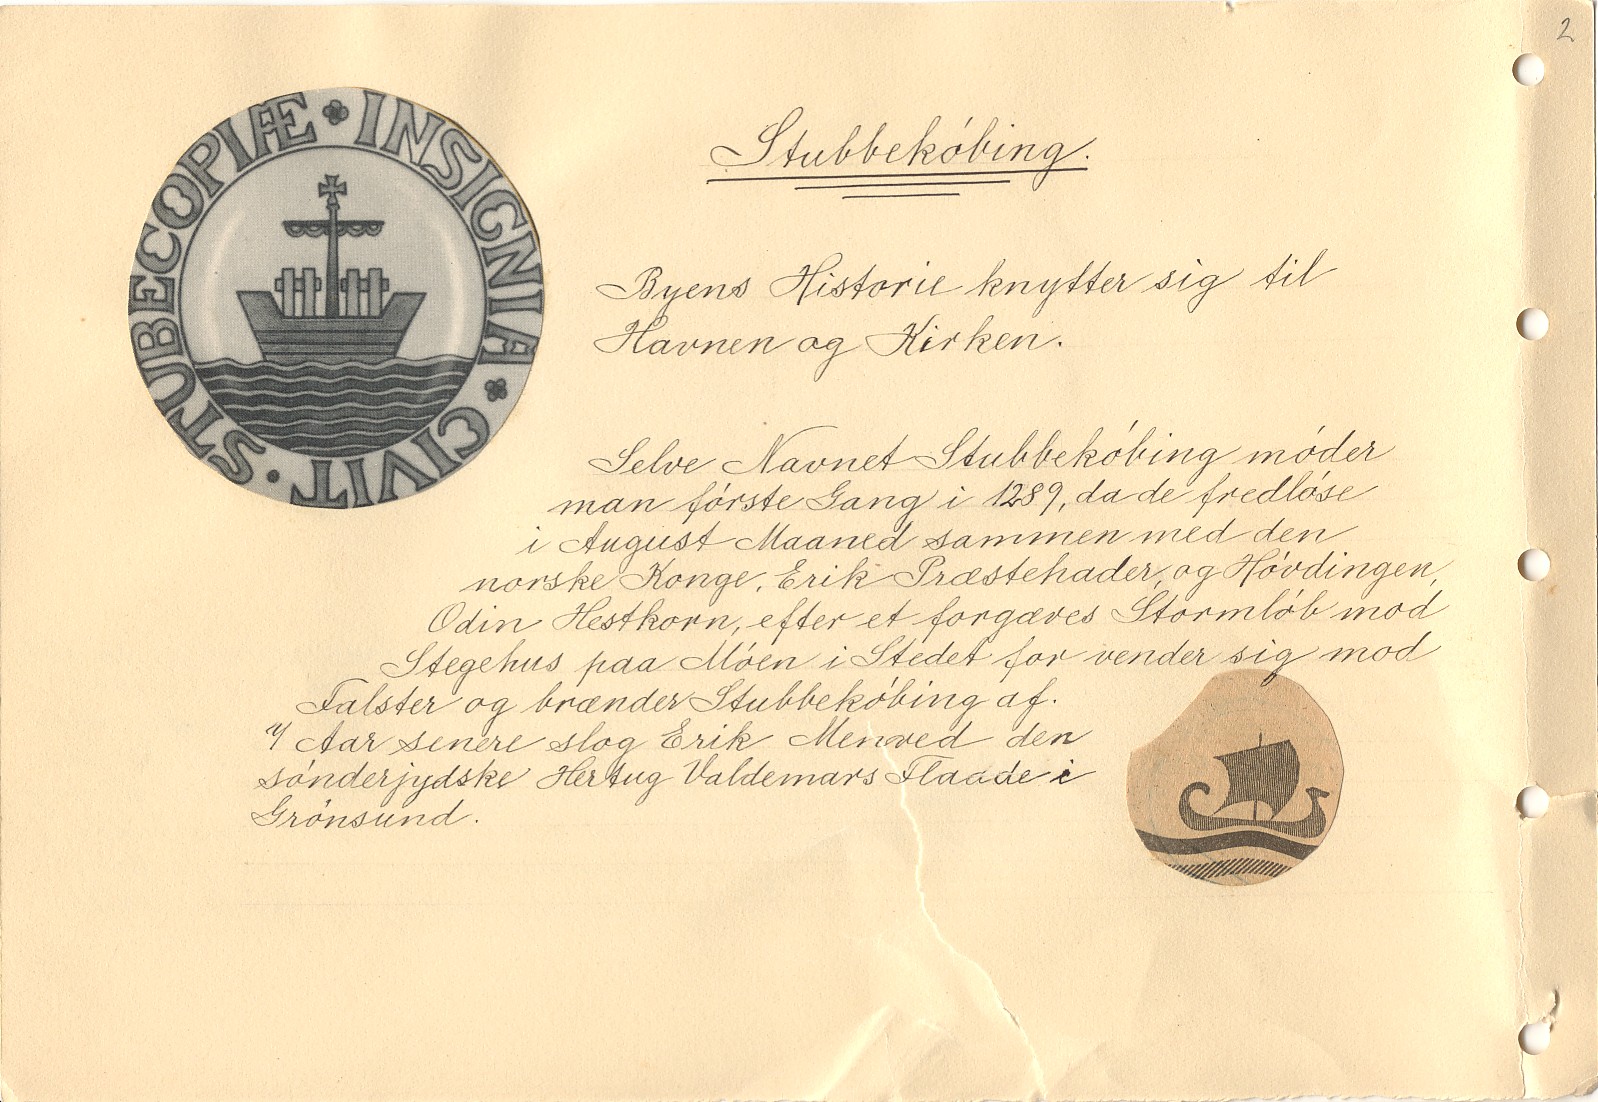 2
STUBECOPIÆ · INSIGNIA · CIVIT ·
Stubbekóbing.
Byens Historie knytter sig til
Havnen og Kirken.
Selve Navnet Stubbekóbing móder
man fórste Gang i 1289, da de fredlóse
i August Maaned sammen med den
norske Konge, Erik Præstehader, og Hóvdingen,
Odin Hestkorn, efter et forgæves Stormlób mod
Stegehus paa Móen i Stedet for vender sig mod
Falster og brænder Stubbekóbing af.
Aar senere slog Erik Menved den
sónderjydske Hertug Valdemars Flaade i
Grónsund.